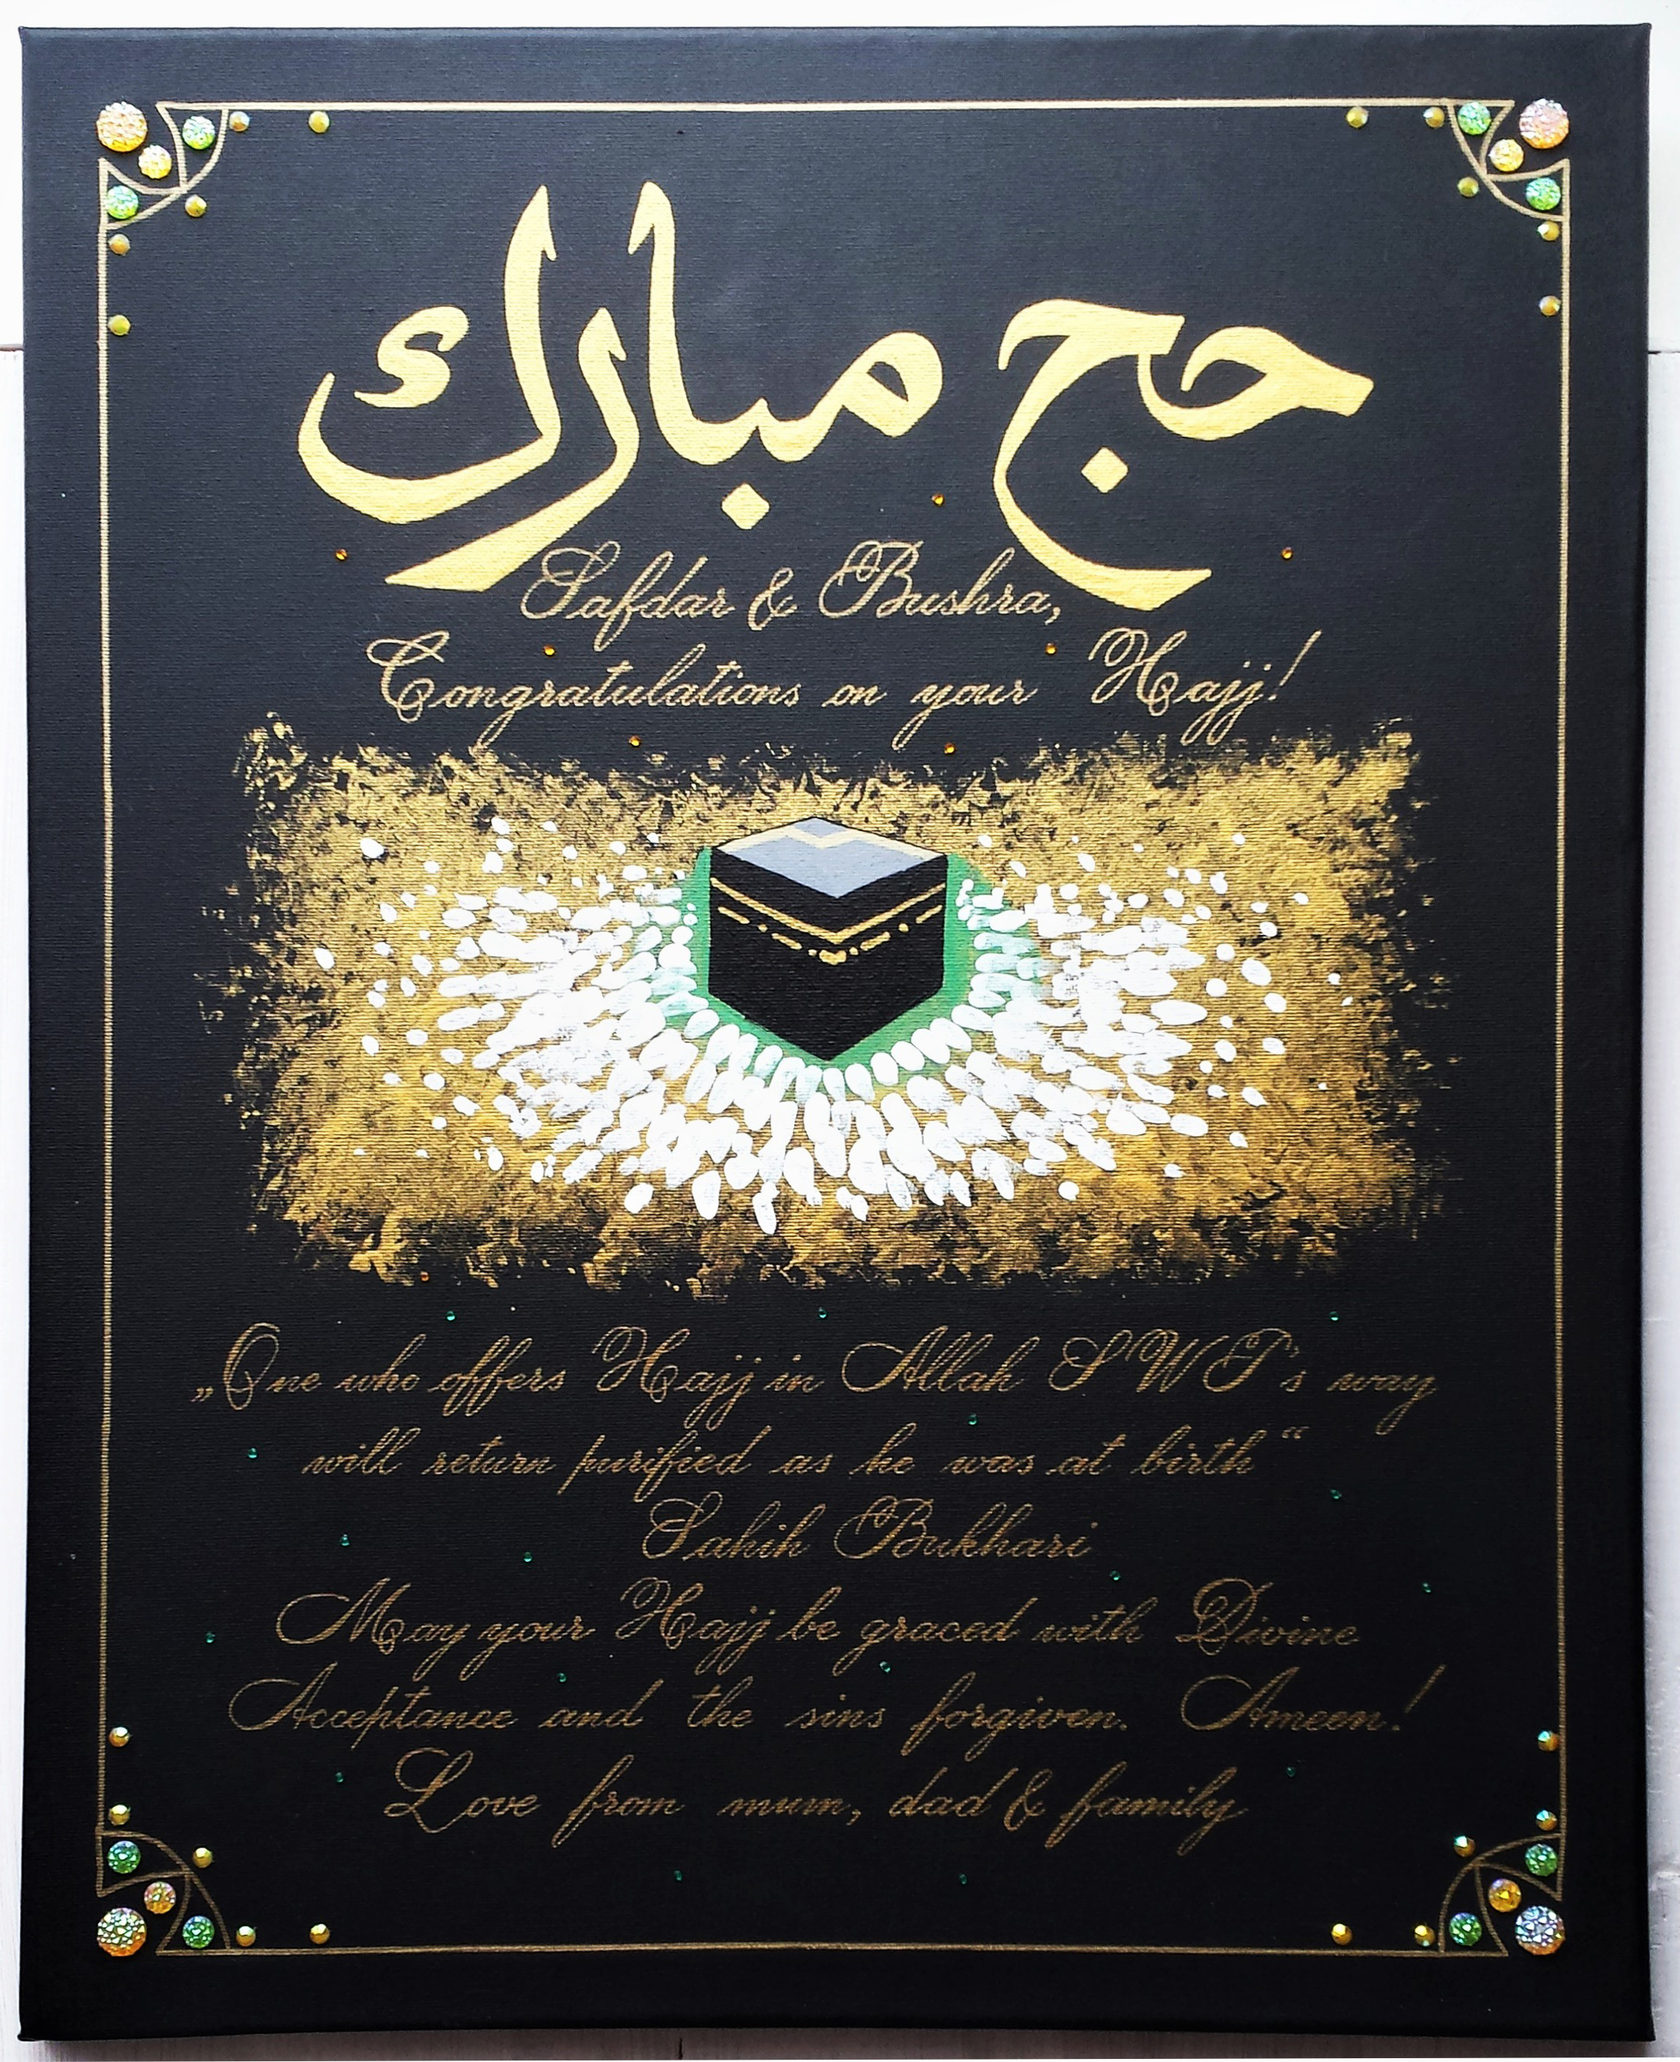 حج مبارك
Safdar & Bushra,
Congratulations on your Hajj!
„One who offers Hajj in Allah SWT's way
will return purified as he was at birth“
Sahih Bukhari
May your Hajj be graced with Divine
Acceptance and the sins forgiven. Ameen!
Love from mum, dad & family